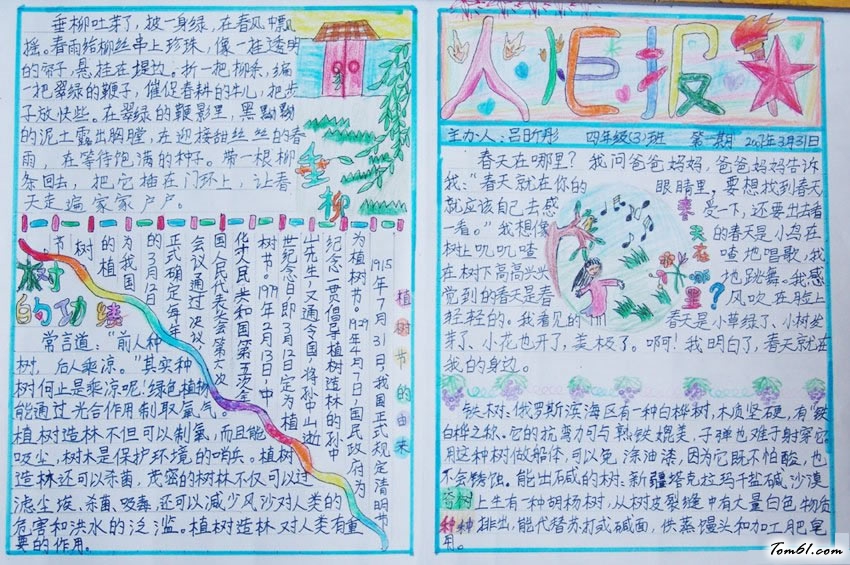 垂柳吐芽了，披一身绿，在春风中飘
摇。春雨给柳丝串上珍珠，像一挂透明
的帘子，悬挂在堤边。折一把柳条，编
一把翠绿的鞭子，催促春耕的牛儿，把步
子放快些。在翠绿的鞭影里，黑黝黝
的泥土露出胸膛，在迎接甜丝丝的春
雨，在等待饱满的种子。带一根柳
条回去，把它插在门环上，让春
天走遍家家户户。
垂柳
春
植树节的由来
1915年7月31日，我国正式规定清明节
为植树节。1929年4月7日国民政府为
纪念一贯倡导植树造林的孙中
山先生，又通令全国，将孙中山逝
世纪念日即3月12日定为植
树节。1979年2月13日，中
华人民共和国第五次全
国人民代表大会第六次
会议通过决议，
正式确定每年
的3月12日
为我国
的植
树
节
树的功绩
常言道：“前人种
树，后人乘凉。”其实种
树何止是乘凉呢！绿色植物
能通过光合作用制取氧气。
植树造林不但可以制氧，而且能
吸尘，树木是保护环境的哨兵。植树
造林还可以杀菌，茂密的树林不仅可以
滤尘埃、杀菌、吸毒，还可以减少风沙对人类的
危害和洪水的泛滥。植树造林对人类有重
要的作用。
人炬报
主办人：吕昕彤 四年级(3)班 第一期 2007年3月31日
春天在哪里？我问爸爸妈妈，爸爸妈妈告诉
我：“春天就在你的眼睛里，要想找到春天
就应该自己去感受一下，还要出去看
一看。”我想像的春天是小鸟在
树上叽叽喳喳地唱歌，我
在树下高高兴兴地跳舞。我感
觉到的春天是春风吹在脸上
轻轻的。我看见的春天是小草绿了、小树发
芽了、小花也开了，美极了。啊！我明白了，春天就在
我的身边。
春天在哪里？
铁树：俄罗斯滨海区有一种白桦树，木质坚硬，有铁
白桦之称。它的抗弯力可与熟铁媲美，子弹也难于射穿它
用这种树做船体，可以免涂油漆，因为它既不怕酸，也
不会锈蚀。能出碱的树：新疆塔克拉玛干盐碱沙漠
上生有一种胡杨树，从树皮裂缝中有大量白色物质
排出，能代替苏打或碱面，供蒸馒头和加工肥皂
用。
奇树种种
Tom61.com